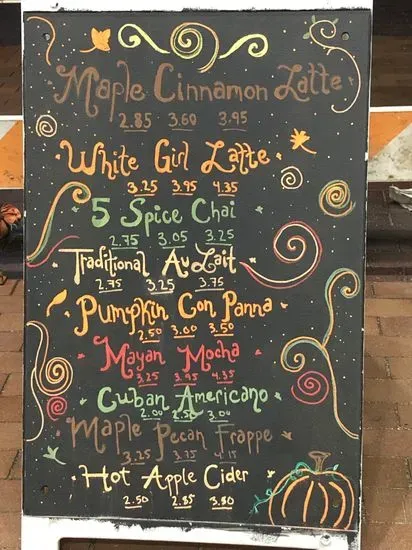 Maple Cinnamon Latte
2.85 3.60 3.95
White Girl Latte
3.25 3.95 4.35
5 Spice Chai
2.75 3.05 3.25
Traditional Au Lait
2.75 3.25 3.75
Pumpkin Con Panna
2.50 3.00 3.50
Mayan Mocha
3.25 3.95 4.35
Cuban Americano
2.00 2.50 3.00
Maple Pecan Frappe
3.25 3.75 4.15
Hot Apple Cider
2.50 2.85 3.80